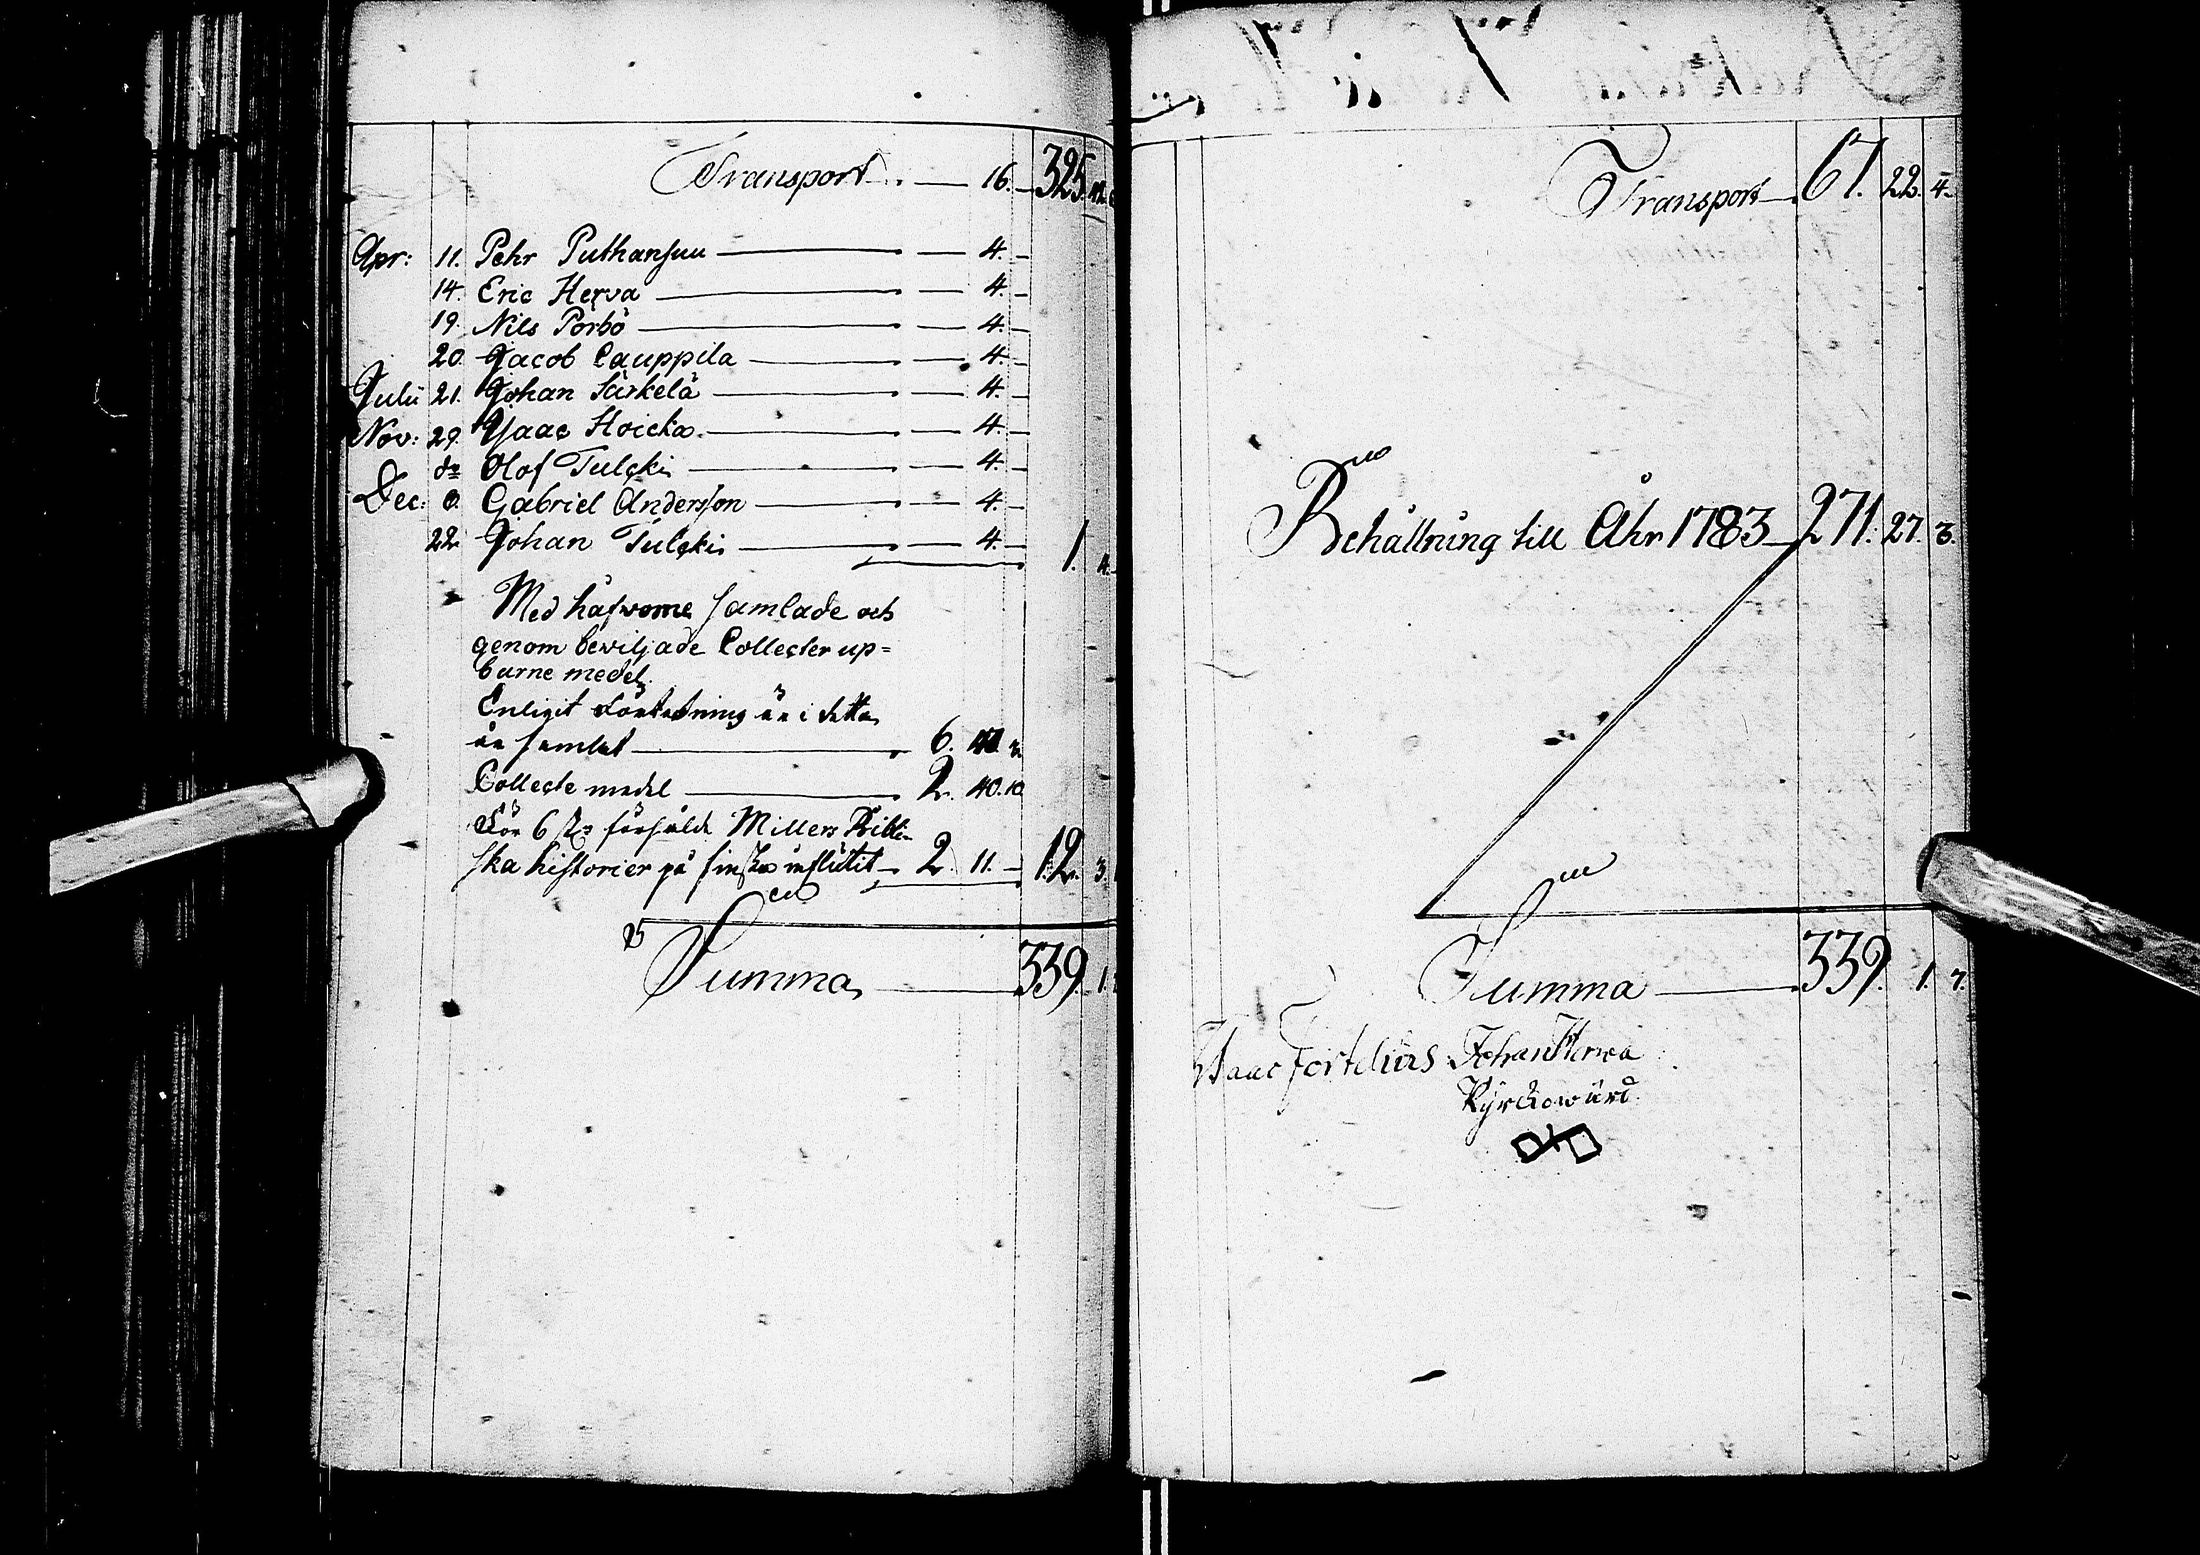 Transport — 16. — 325. 42.
Apr: 11. Pehr Puthansuu — 4. —
14. Eric Herva — 4. —
19. Nils Porbö — 4. —
20. Jacob Cauppila — 4. —
Julii 21. Johan Särkelä — 4. —
Nov: 29. Ysaac Hoicka — 4. —
do Olof Tulcki — 4. —
Dec: 8. Gabriel Andersson — 4. —
22. Johan Tulcki — 4. — 1. 4.
Med håfvorne samlade och
genom beviljade Collecter up=
burne medel.
Enligit Förtekning är i detta
år samlat — 6. 40.
Collecte medel — 2. 40. 10
För 6 st: försålde Millers Bibli-
ska historier på finska influtit — 2. 11. — 12. 3.
Summa — 339. 1.
Transport — 67. 22. 4.
Behållning till Åhr 1783 — 271. 27. 3.
Summa — 339. 1. 7.
Isaac Fortelius Johan Herva
Kyrckowärd